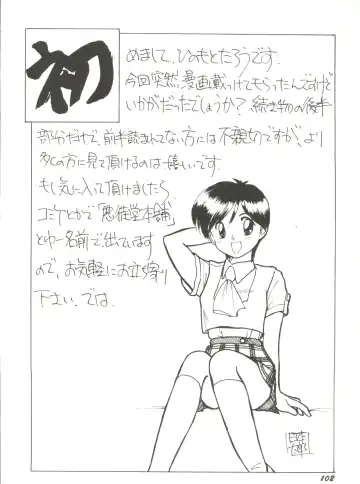 初めまして、ひのもとたろうです。
今回突然、漫画載っけてもらったんですけど
いかがだったでしょうか?続き物の後半
部分だけで、前半読まれてない方には不親切ですが、より
多くの方に見て頂けるのは嬉しいです。
もし気に入って頂けましたら
コミケとかで「悪徒堂本舗」
とゆー名前で出ています
ので、お気軽にお立ち寄り
下さい。では.
102